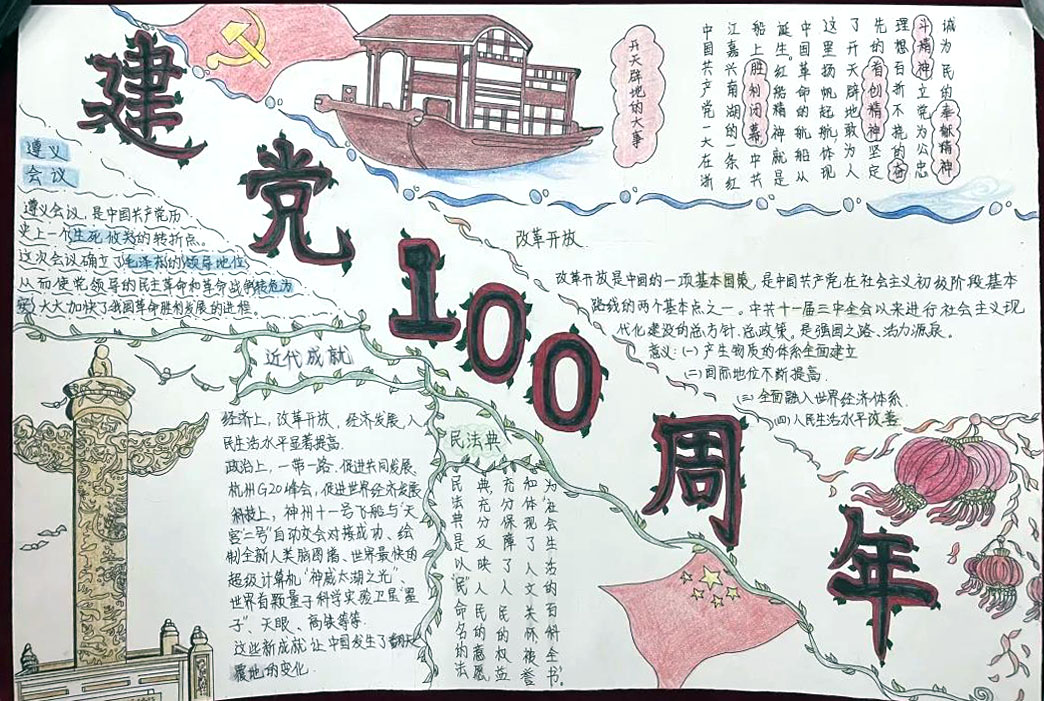 建党100周年
开天辟地的大事
中国共产党一大在浙
江嘉兴南湖的一条红
船上胜利闭幕,中共
诞生。红船精神就是
中国革命的航船从
这里扬帆起航,体现
了开天辟地敢为人
先的首创精神坚定
理想百折不挠的奋
斗精神立党为公忠
诚为民的奉献精神
遵义
会议
遵义会议，是中国共产党历
史上一个生死攸关的转折点。
这次会议确立了毛泽东的领导地位
从而使党领导的民主革命和革命战争转危为
安,大大加快了我国革命胜利发展的进程。
改革开放
改革开放是中国的一项基本国策，是中国共产党在社会主义初级阶段基本
路线的两个基本点之一。中共十一届三中全会以来进行社会主义现
代化建设的总方针、总政策。是强国之路、活力源泉。
意义：(一)产生物质的体系全面建立
(二)国际地位不断提高.
(三)全面融入世界经济体系.
(四)人民生活水平改善
近代成就
经济上，改革开放、经济发展,人
民生活水平显著提高.
政治上，一带一路、促进共同发展、
杭州G20峰会，促进世界经济发展
科技上，神州十一号飞船与“天
宫”二号”自动交会对接成功、绘
制全新人类脑图谱、世界最快的
超级计算机“神威太湖之光”、
世界首颗量子科学实验卫星“墨
子”、天眼、高铁等等.
这些新成就让中国发生了翻天
覆地的变化.
民法典
民法典是以“民”命名的法
典,充分反映人民的意愿
充分保障了人民的权益
和体现了人文关怀被誉
为“社会生活的百科全书”。